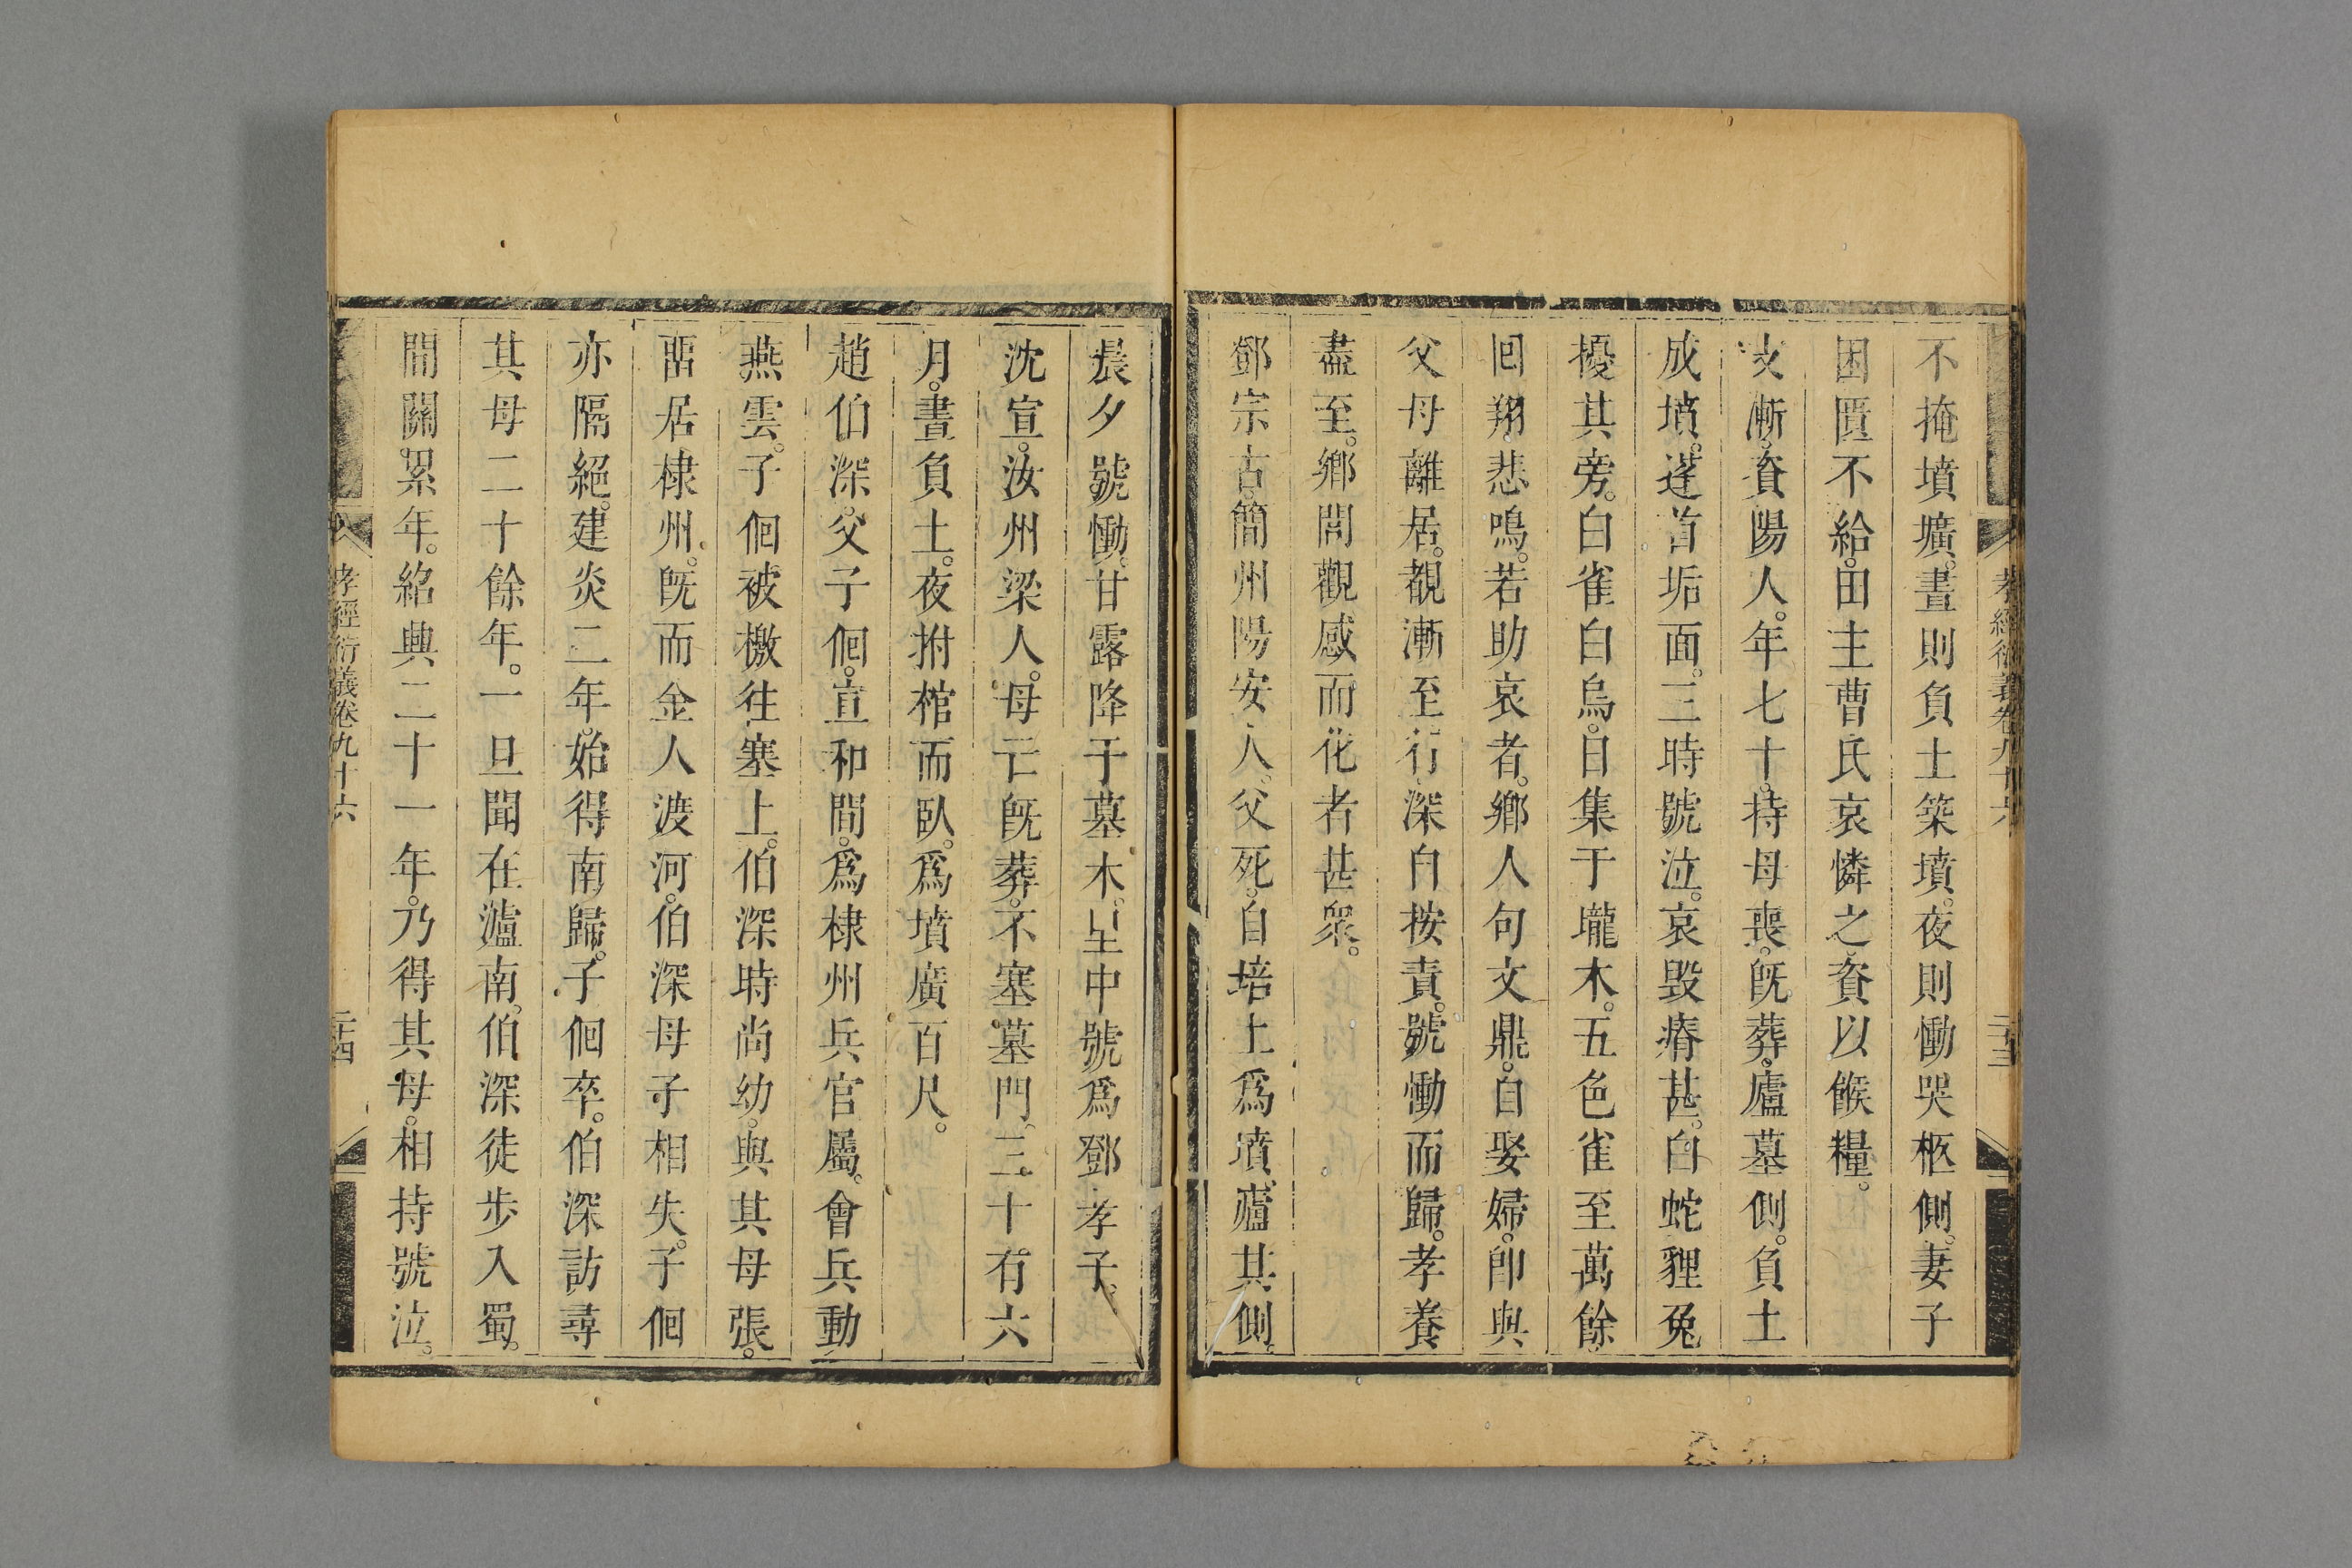 不掩墳壙。晝則負土築墳。夜則慟哭柩側。妻子
困匱不給。田主曹氏哀憐之。資以餱糧。
支漸。資陽人。年七十。持母喪。旣葬。廬墓側。負土
成墳。蓬首垢面。三時號泣。哀毀瘠甚。白蛇貍兔
擾其旁。白雀白烏。日集于壠木。五色雀至萬餘。
回翔悲鳴。若助哀者。鄉人句文鼎。自娶婦。卽與
父母離居。覩漸至行。深自按責。號慟而歸。孝養
盡至。鄉閭觀感。而化者甚衆。
鄧宗古。簡州陽安人。父死。自培土爲墳。廬其側。
晨夕號慟。甘露降于墓木。里中號爲鄧孝子。
沈宣。汝州梁人。母亡旣葬。不塞墓門。三十有六
月。晝負土。夜拊棺而臥。爲墳廣百尺。
趙伯深。父子佪。宣和間。爲棣州兵官屬。會兵動
燕雲。子佪被檄往塞上。伯深時尚幼。與其母張。
畱居棣州。旣而金人渡河。伯深母子相失。子佪
亦隔絕。建炎二年。始得南歸。子佪卒。伯深訪尋
其母二十餘年。一旦聞在瀘南。伯深徒步入蜀。
間關累年。紹興二十一年。乃得其母。相持號泣。
孝經衍義卷九十六
二十三
孝經衍義卷九十六
二十四